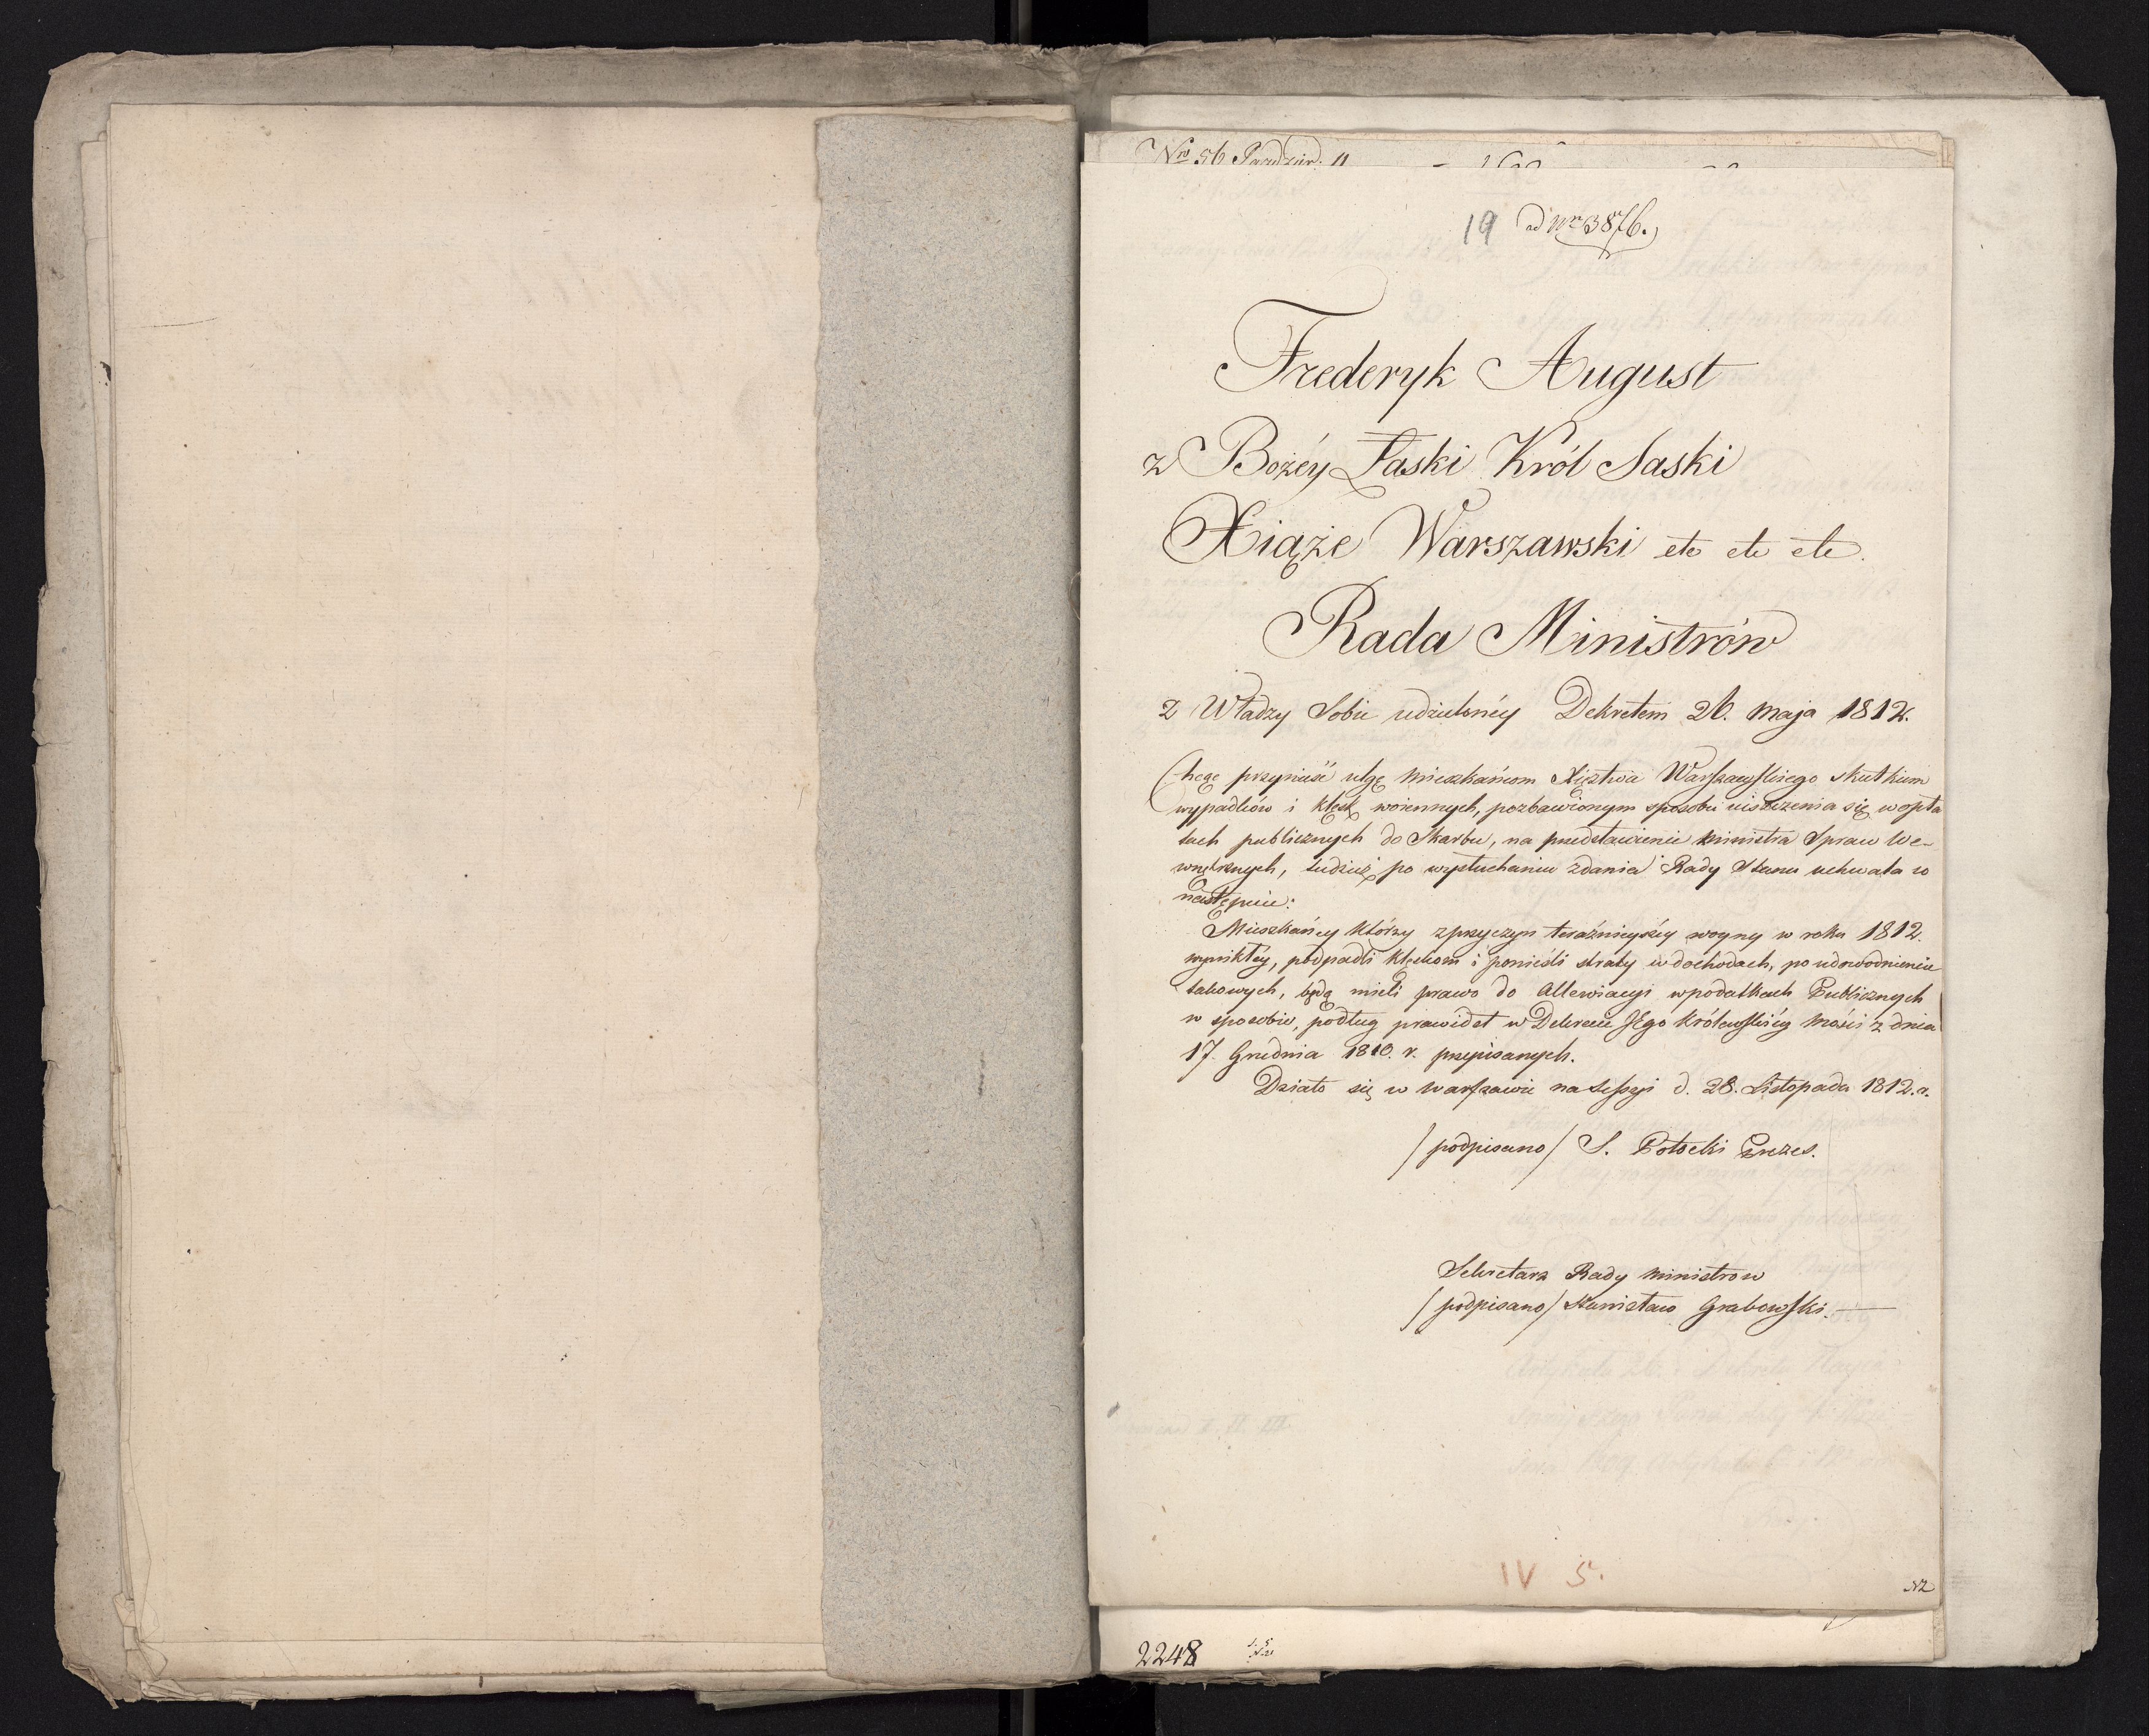 Nro 56 Paździer: 11
19 ad Nrm 3876.
Frederyk August
z Bożéy Łaski Król Saski
Xiąże Warszawski etc etc etc.
Rada Ministrów
z Władzy Sobie udzielonéy Dekretem 26. Maja 1812.
Chcąc przynieść ulgę Mieszkańcom Xięztwa Warszawskiego skutkiem
wypadków i klęsk woiennych, pozbawionym sposobu uiszczenia się w opła
tach publicznych do Skarbu, na przedstawienie Ministra Spraw We-
wnętrznych, tudzież po wysłuchaniu zdania Rady Stanu uchwala co
następuie:
Mieszkańcy którzy z przyczyn teraźnieyszéy woyny w roku 1812.
wynikłéy, podpadli klęskom i ponieśli straty w dochodach, po udowodnieniu
takowych, będą mieli prawo do Allewiacyi w podatkach Publicznych
w sposobie, podług prawideł w Dekrecie JEgo Królewskiéy Mości z dnia
17. Grudnia 1810. r. przepisanych.
Działo się w Warszawie na Sessyi d. 28. Listopada 1812. r.
/podpisano/ S. Potocki Prezes.
Sekretarz Rady Ministrow
/podpisano/ Stanisław Grabowski.
IV 5.
2248